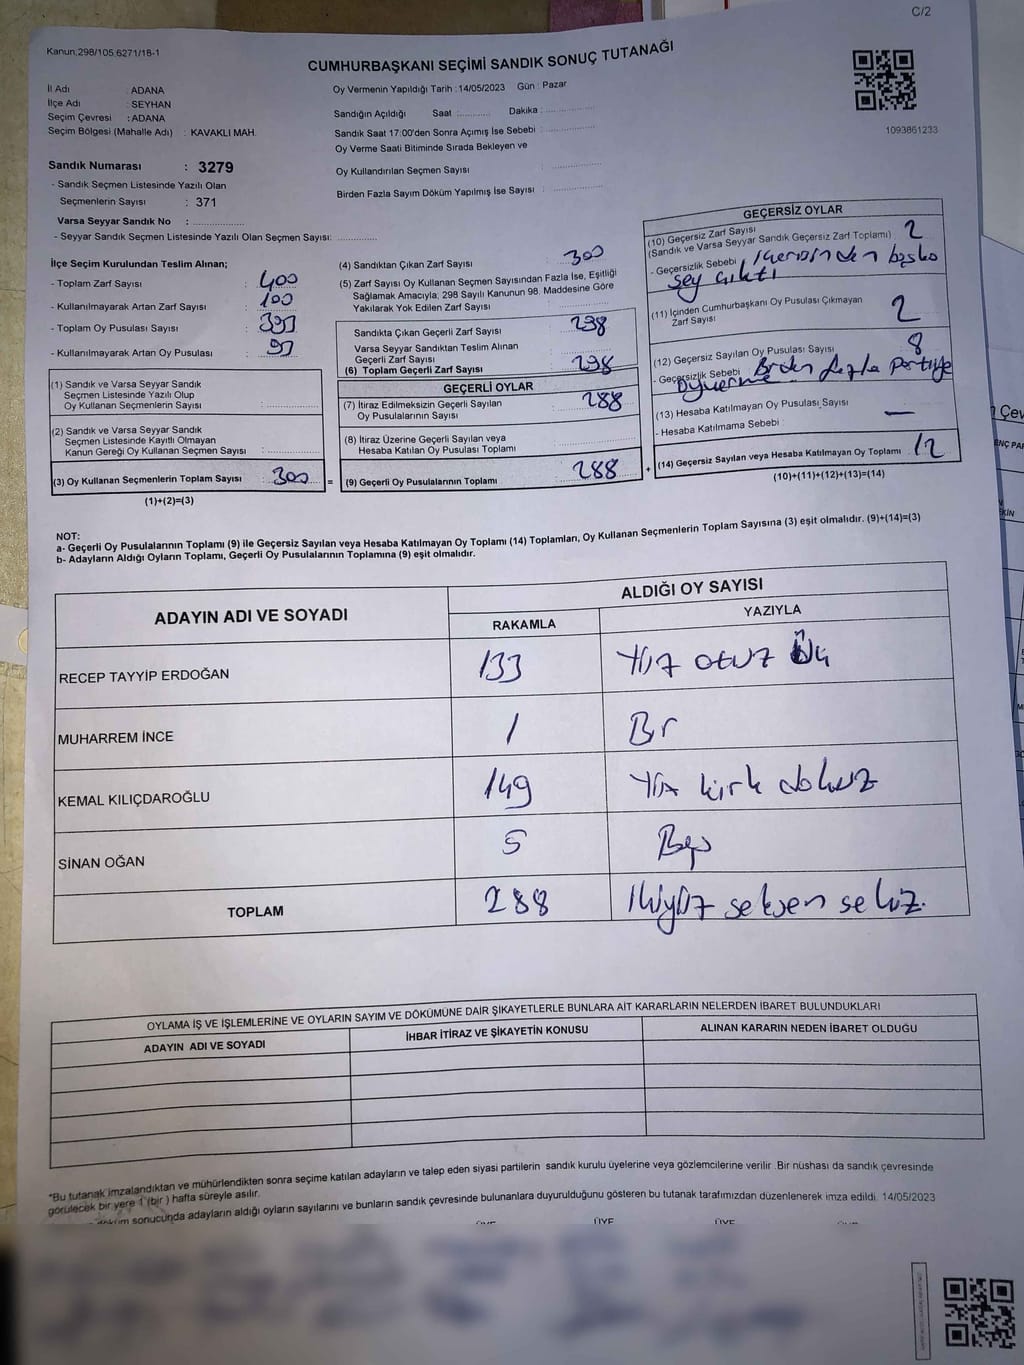 C/2
Kanun,298/105,6271/18-1
CUMHURBAŞKANI SEÇİMİ SANDIK SONUÇ TUTANAĞI
İl Adı : ADANA
İlçe Adı : SEYHAN
Seçim Çevresi : ADANA
Seçim Bölgesi (Mahalle Adı) : KAVAKLI MAH.
Oy Vermenin Yapıldığı Tarih : 14/05/2023 Gün : Pazar
Sandığın Açıldığı Saat : Dakika :
Sandık Saat 17:00'den Sonra Açımış İse Sebebi :
Oy Verme Saati Bitiminde Sırada Bekleyen ve
Oy Kullandırılan Seçmen Sayısı :
Birden Fazla Sayım Döküm Yapılmış İse Sayısı :
1093861233
Sandık Numarası : 3279
- Sandık Seçmen Listesinde Yazılı Olan
Seçmenlerin Sayısı : 371
Varsa Seyyar Sandık No :
- Seyyar Sandık Seçmen Listesinde Yazılı Olan Seçmen Sayısı:
İlçe Seçim Kurulundan Teslim Alınan;
- Toplam Zarf Sayısı : 400
- Kullanılmayarak Artan Zarf Sayısı : 100
- Toplam Oy Pusulası Sayısı : 397
- Kullanılmayarak Artan Oy Pusulası : 97
(1) Sandık ve Varsa Seyyar Sandık
Seçmen Listesinde Yazılı Olup
Oy Kullanan Seçmenlerin Sayısı :
(2) Sandık ve Varsa Seyyar Sandık
Seçmen Listesinde Kayıtlı Olmayan
Kanun Gereği Oy Kullanan Seçmen Sayısı :
(3) Oy Kullanan Seçmenlerin Toplam Sayısı : 300
(1)+(2)=(3)
=
(4) Sandıktan Çıkan Zarf Sayısı : 300
(5) Zarf Sayısı Oy Kullanan Seçmen Sayısından Fazla İse, Eşitliği
Sağlamak Amacıyla; 298 Sayılı Kanunun 98. Maddesine Göre
Yakılarak Yok Edilen Zarf Sayısı :
Sandıkta Çıkan Geçerli Zarf Sayısı : 298
Varsa Seyyar Sandıktan Teslim Alınan
Geçerli Zarf Sayısı :
(6) Toplam Geçerli Zarf Sayısı : 298
GEÇERLİ OYLAR
(7) İtiraz Edilmeksizin Geçerli Sayılan
Oy Pusulalarının Sayısı : 288
(8) İtiraz Üzerine Geçerli Sayılan veya
Hesaba Katılan Oy Pusulası Toplamı :
(9) Geçerli Oy Pusulalarının Toplamı : 288
+
GEÇERSİZ OYLAR
(10) Geçersiz Zarf Sayısı
(Sandık ve Varsa Seyyar Sandık Geçersiz Zarf Toplamı) : 2
- Geçersizlik Sebebi : içerisinden başka
şey çıktı
(11) İçinden Cumhurbaşkanı Oy Pusulası Çıkmayan
Zarf Sayısı : 2
(12) Geçersiz Sayılan Oy Pusulası Sayısı : 8
- Geçersizlik Sebebi : Birden fazla partiye
oyverme
(13) Hesaba Katılmayan Oy Pusulası Sayısı : —
- Hesaba Katılmama Sebebi :
(14) Geçersiz Sayılan veya Hesaba Katılmayan Oy Toplamı : 12
(10)+(11)+(12)+(13)=(14)
NOT:
a- Geçerli Oy Pusulalarının Toplamı (9) ile Geçersiz Sayılan veya Hesaba Katılmayan Oy Toplamı (14) Toplamları, Oy Kullanan Seçmenlerin Toplam Sayısına (3) eşit olmalıdır. (9)+(14)=(3)
b- Adayların Aldığı Oyların Toplamı, Geçerli Oy Pusulalarının Toplamına (9) eşit olmalıdır.
ADAYIN ADI VE SOYADI
ALDIĞI OY SAYISI
RAKAMLA YAZIYLA
RECEP TAYYİP ERDOĞAN 133 Yüz otuz Üç
MUHARREM İNCE 1 Bir
KEMAL KILIÇDAROĞLU 149 Yüz kırk dokuz
SİNAN OĞAN 5 Beş
TOPLAM 288 İkiyüz seksen sekiz.
OYLAMA İŞ VE İŞLEMLERİNE VE OYLARIN SAYIM VE DÖKÜMÜNE DAİR ŞİKAYETLERLE BUNLARA AİT KARARLARIN NELERDEN İBARET BULUNDUKLARI
ADAYIN ADI VE SOYADI İHBAR İTİRAZ VE ŞİKAYETİN KONUSU ALINAN KARARIN NEDEN İBARET OLDUĞU
*Bu tutanak imzalandıktan ve mühürlendikten sonra seçime katılan adayların ve talep eden siyasi partilerin sandık kurulu üyelerine veya gözlemcilerine verilir .Bir nüshası da sandık çevresinde
görülecek bir yere 1 (bir ) hafta süreyle asılır.
döküm sonucunda adayların aldığı oyların sayılarını ve bunların sandık çevresinde bulunanlara duyurulduğunu gösteren bu tutanak tarafımızdan düzenlenerek imza edildi. 14/05/2023
ÜYE ÜYE ÜYE